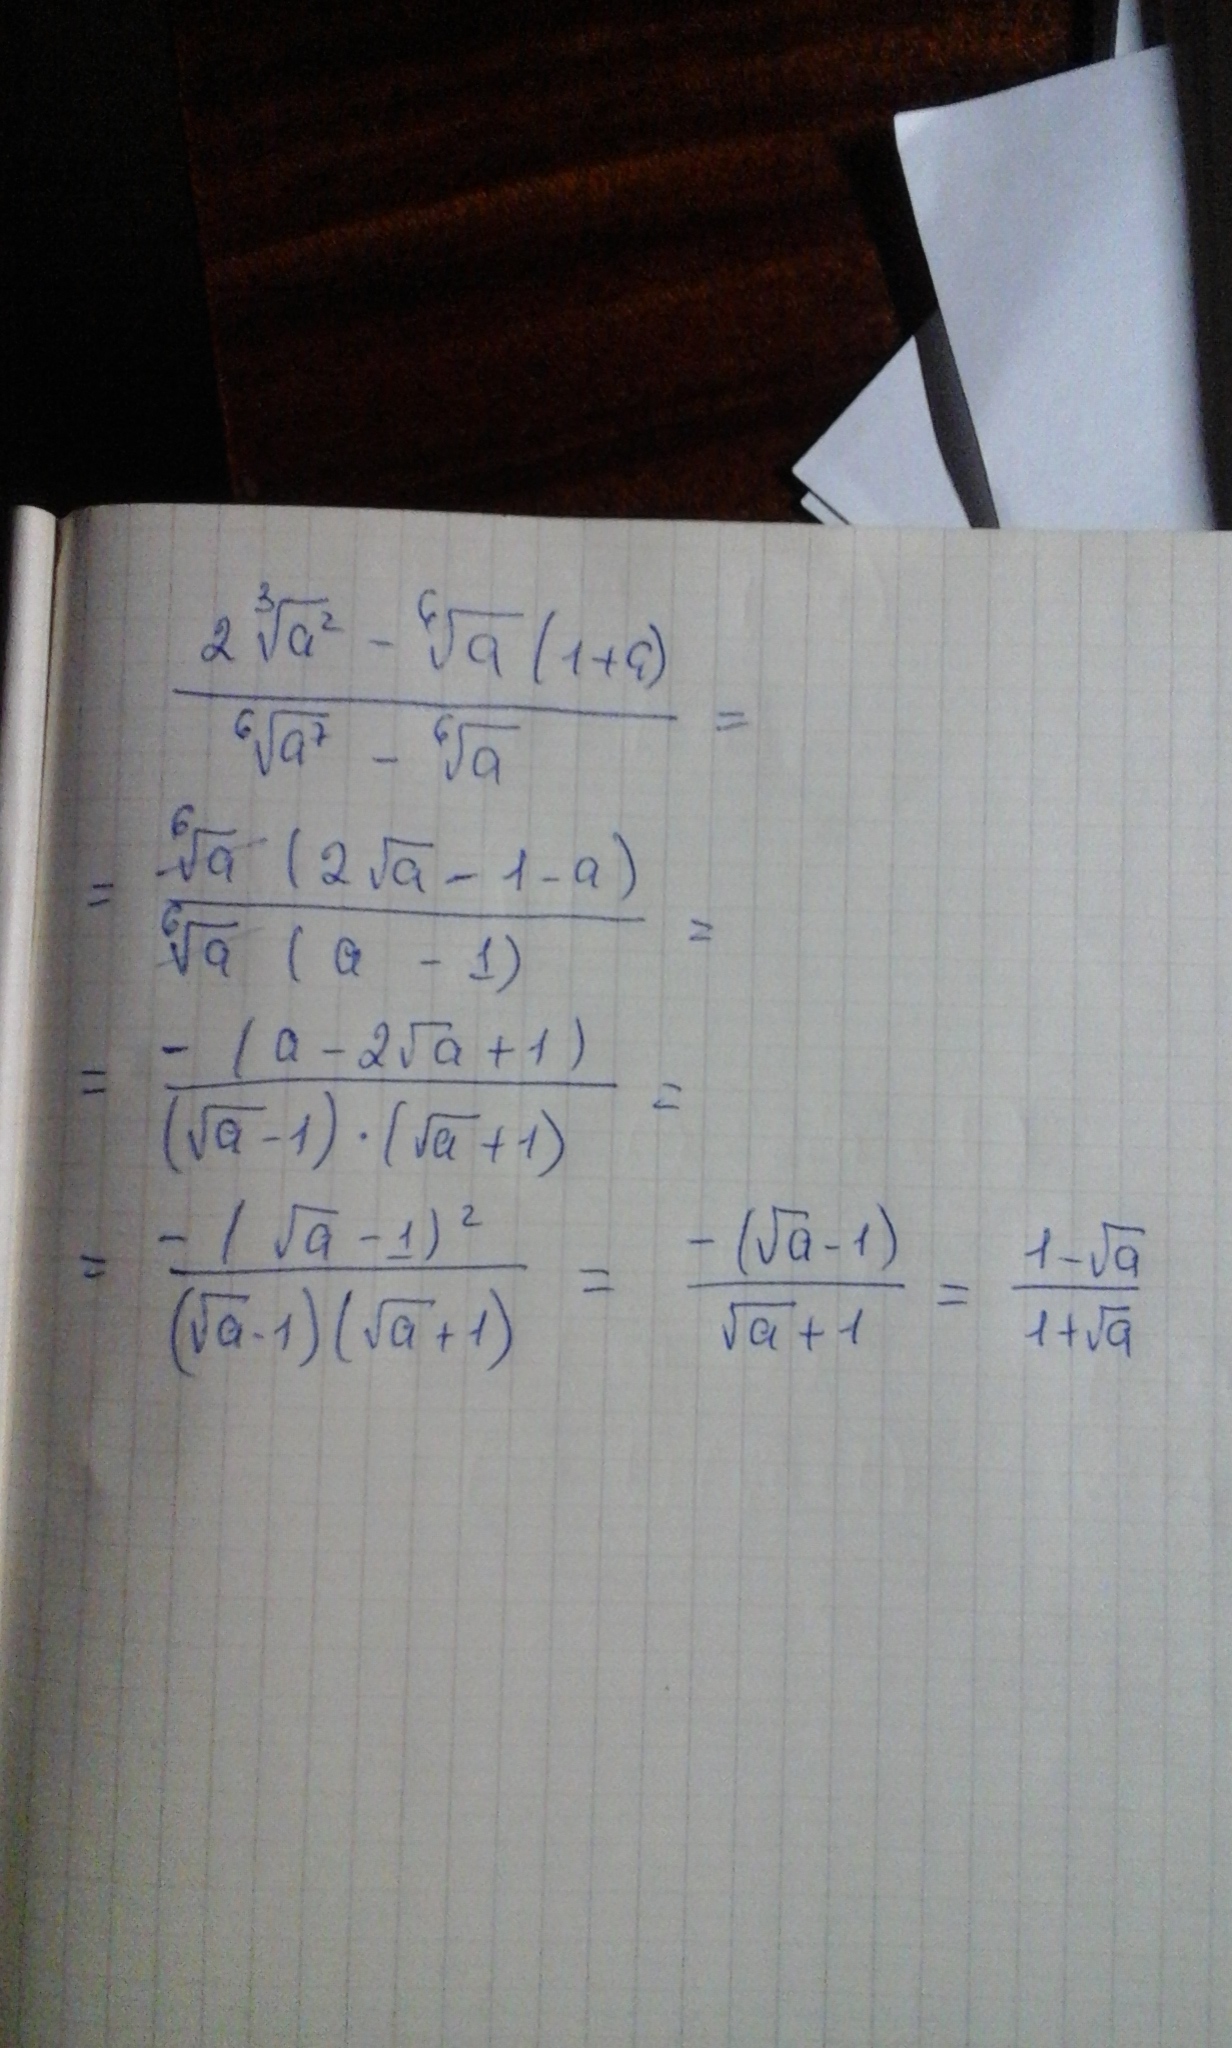 2∛a² - ⁶√a (1+a)
⁶√a⁷ - ⁶√a =
= ⁶√a (2√a - 1 - a)
⁶√a (a - 1) =
= - (a - 2√a + 1)
(√a - 1) · (√a + 1) =
= - (√a - 1)² / (√a - 1)(√a + 1) = - (√a - 1) / √a + 1 = 1 - √a / 1 + √a